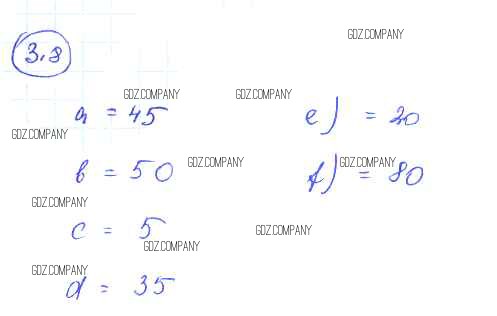 3.8
GDZ.COMPANY
GDZ.COMPANY
GDZ.COMPANY
a = 45
e) = 20
GDZ.COMPANY
b = 50
GDZ.COMPANY
f) = 80
GDZ.COMPANY
GDZ.COMPANY
c = 5
GDZ.COMPANY
GDZ.COMPANY
d = 35
GDZ.COMPANY